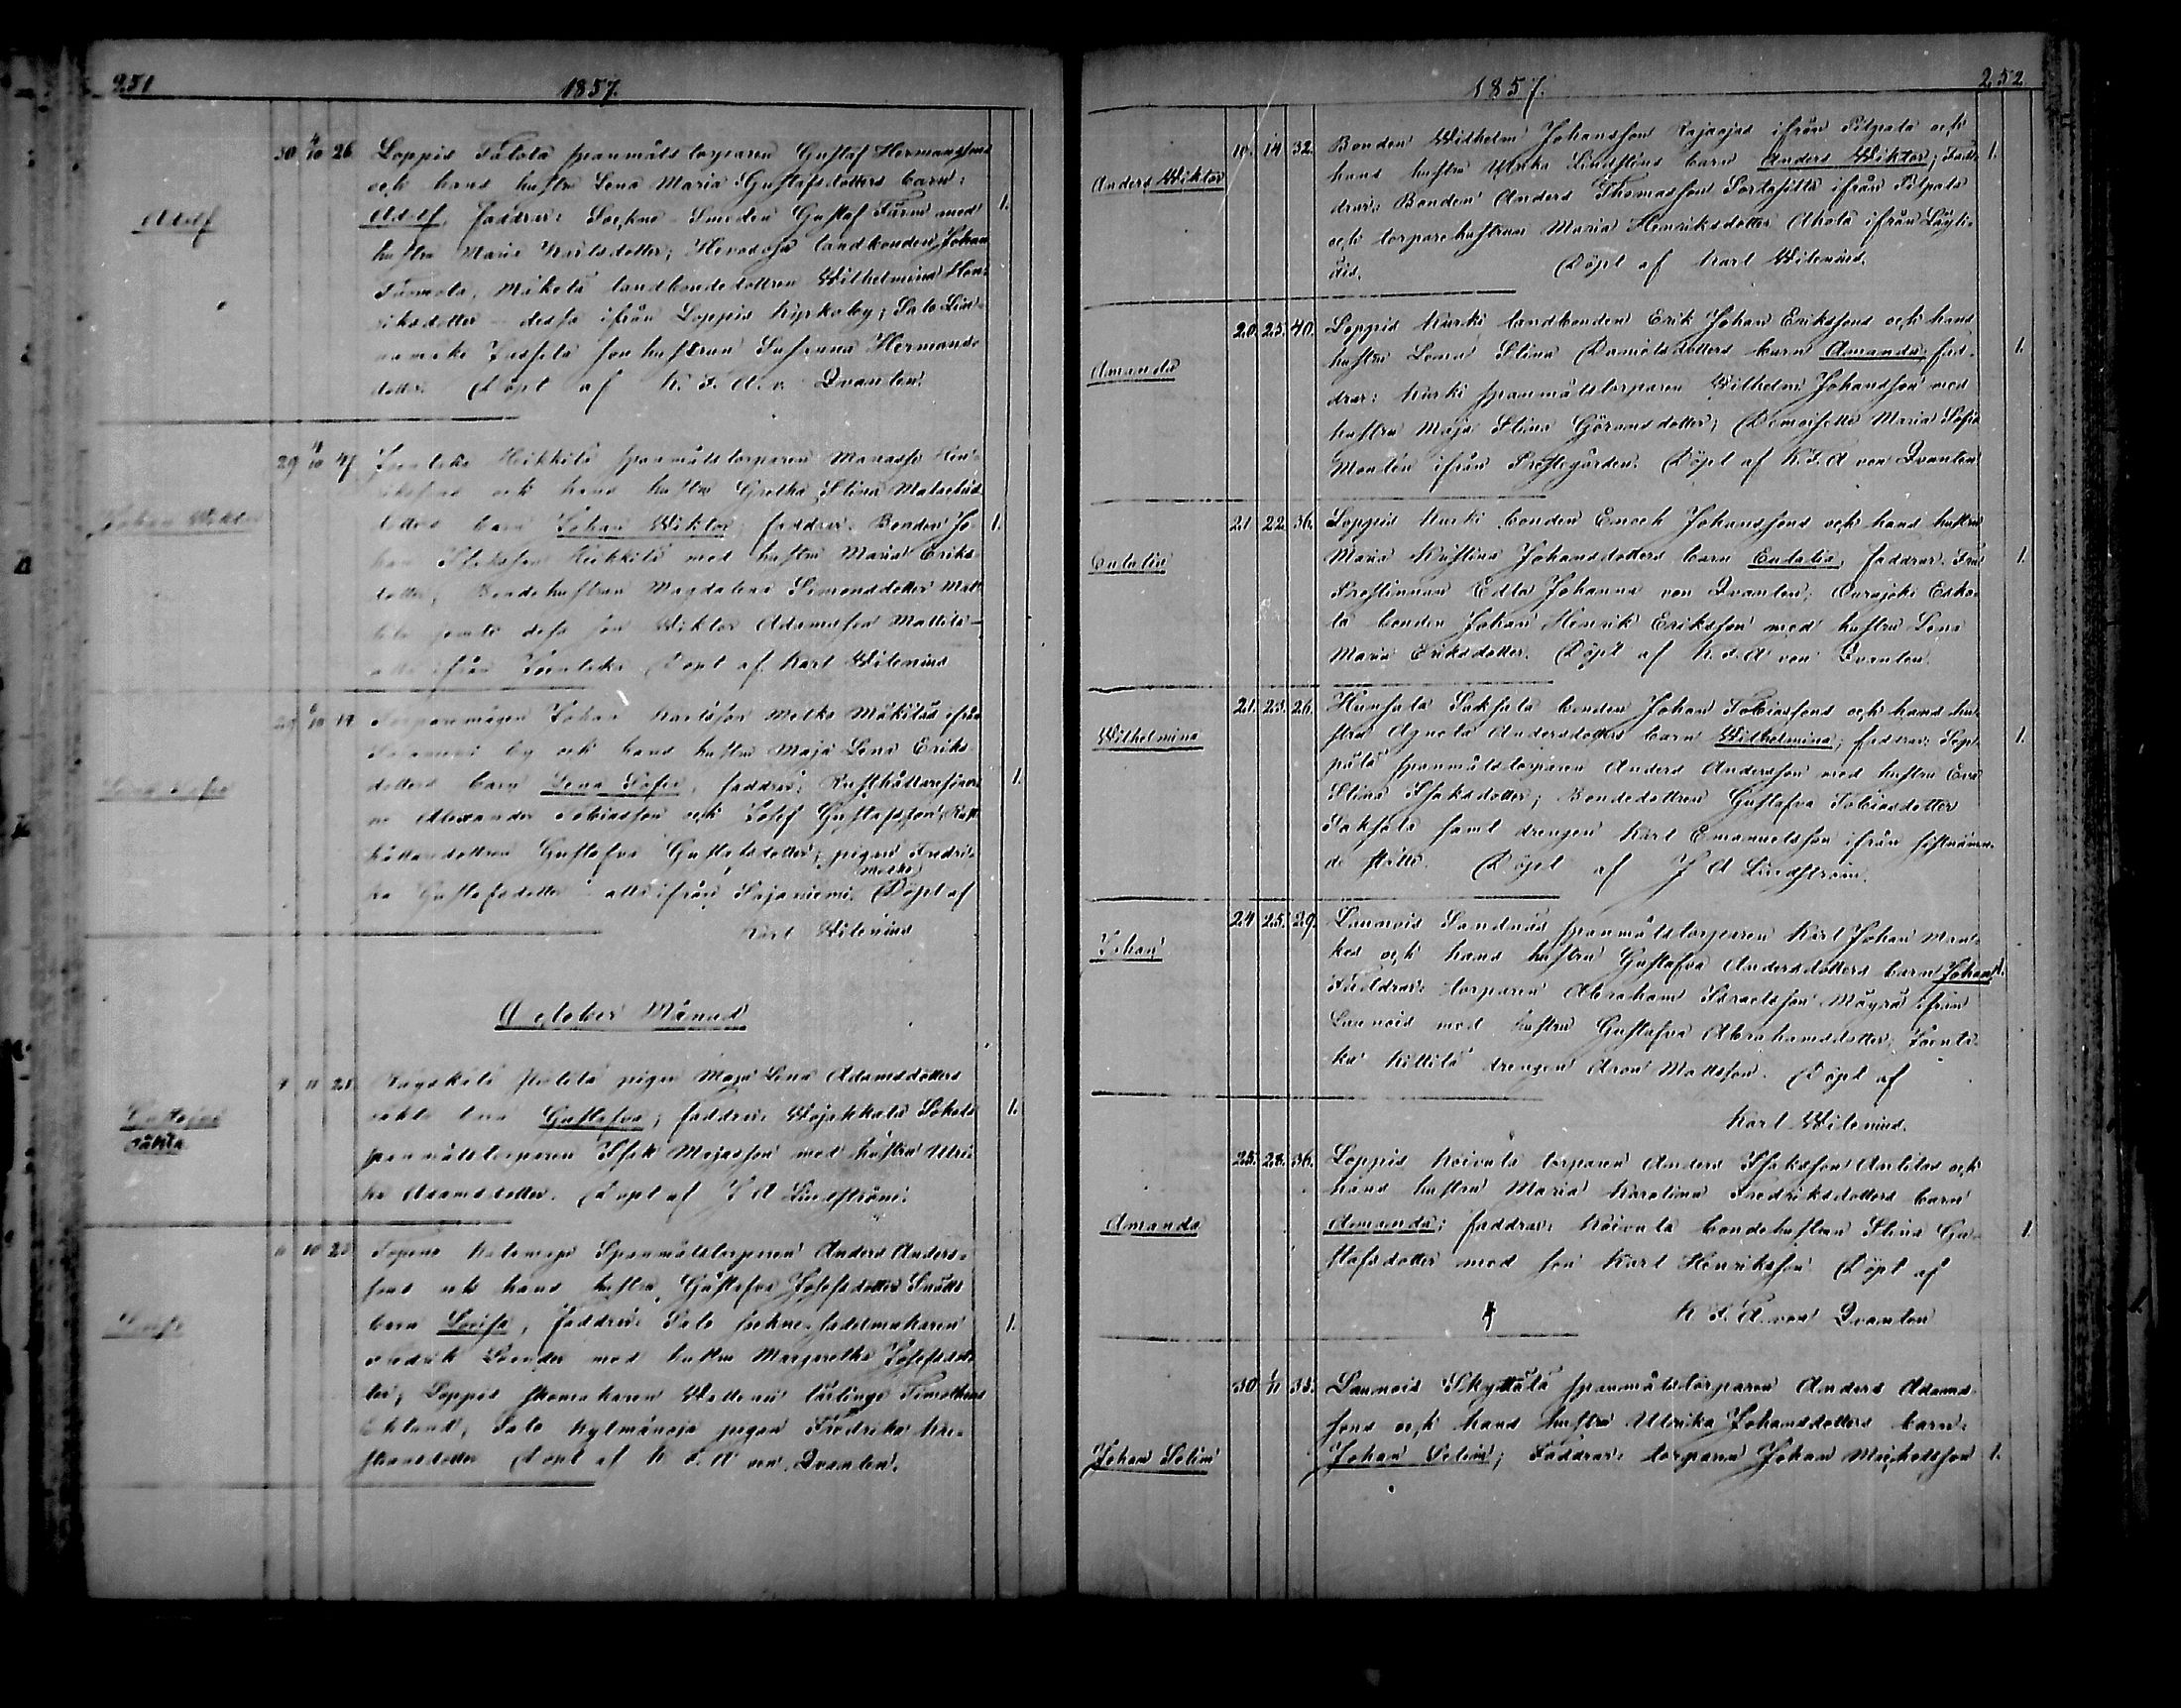 251
1857.
Adolf
30 4/10 26 Loppis Talola spanmåls torparen Gustaf Hermanssons
och hans hustru Lena Maria Gustafsdotters barn:
Adolf, faddrar: Sockne-Smeden Gustaf Färm med 1.
hustru Maria Karlsdotter; Hevosoja landbonden Johan
Tuomola, Mäkelä landbondedottren Wilhelmina Hen-
riksdotter - dessa ifrån Loppis Kyrkoby; Salo
sonhustrun Susanna Hermans-
dotter. Döpt af K. F. A. v. Qvanten.
Johan Wiktor
29 4/10 47 Heikkilä spanmåls torparen Manasse Hen-
rikssons och hans hustru Gretha Stina
dotters barn Johan Wiktor, faddrar: Bonden Jo- 1.
han Isaksson Heikkilä med hustru Maria Eriks-
dotter, Bondehustrun Magdalena Simonsdotter Mat-
tila jemte dess son Wiktor Adamsson Mattila -
alla ifrån Döpt af Karl Witenius
Lena Sofia
29 Torparemågen Johan Karlsson Melko Mäkiläs ifrån
by och hans hustru Maja Lena Eriks-
dotters barn Lena Sofia, faddrar: Rusthållaresöner- 1.
ne Alexander Tobiasson och Josef Gustafsson, Rust-
hållaredottren Gustafva Gustafsdotter; pigan Fredri-
Melko
ka Gustafsdotter alla ifrån Sajaniemi. Döpt af
Karl Witenius
October Månad
Gustafva
oäkta
11 28. pigan Maja Lena Adamsdotters
oäkta barn Gustafva; faddrar: Wojakkala 1.
spanmåls torparen Isak Majasson med hustru Ulri-
ka Adamsdotter. Döpt af J A Lindström.
Lovisa
10 Topeno Spanmåls torparen Anders Anders-
sons och hans hustru Gustafva Josefsdotter
barn Lovisa, faddrar: Salo sockne-sadelmakaren 1.
Fredrik med hustru Margaretha Josefsdot-
ter; Loppis skomakaren lärlinge Timotheus
Eklund, Salo Kylmänoja pigan Fredrika Kri-
stiansdotter Döpt af K F. A von Qvanten.
1857.
252
Anders Wiktor
10. 14 32. Bonden Wilhelm Johanssons Rajaojas ifrån Pilpala och
hans hustru Ulrika barn Anders Wiktor; Fad- 1.
drar: Bonden Anders Thomasson ifrån Pilpala
och torparehustrun Maria Henriksdotter Ahola ifrån Läyli-
äis. Döpt af Karl Witenius.
Amanda
20. 25. 40. Loppis Kurki landbonden Erik Johan Erikssons och hans
hustru Lovisa Stina Danielsdotters barn Amanda, fad- 1.
drar: Kurki spanmåls torparen Wilhelm Johansson med
hustru Maja Stina Göransdotter; Demoiselle Maria Sofia
Montén ifrån Prestegården. Döpt af K. F. A von Qvanten
Eulalia
21. 22. 36. Loppis Kurki bonden Enoch Johanssons och hans hustru
Maria Kristina Johansdotters barn Eulalia, faddrar: Fru 1.
Prestinnan Edla Johanna von Qvanten; Ourajoki Esko-
la bonden Johan Henrik Eriksson med hustru Lena
Maria Eriksdotter. Döpt af K. F. A von Qvanten.
Wilhelmina
21. 23. 26. Hunsala Saksala bonden Johan Tobiassons och hans hu-
stru Agneta Andersdotters barn Wilhelmina; faddrar: Sep- 1.
pälä spanmåls torparen Anders Andersson med hustru Eva
Stina Isaksdotter; Bondedottren Gustafva Tobiasdotter
Saksala samt drengen Karl Emanuelsson ifrån sistnämn-
de ställe. Döpt af J A Lindström.
Johan
24. 25. 29. Launois Sandnäs spanmåls torparen Karl Johan
och hans hustru Gustafva Andersdotters barn Johan 1.
Faddrar: torparen Abraham Israelsson Mäyrä ifrån
Launois med hustru Gustafva Abrahamsdotter;
Kittilä drengen Aron Mattsson. Döpt af
Karl Witenius.
Amanda
25. 28. 36. Loppis Koivula torparen Anders Isaksson och
hans hustru Maria Karolina Fredriksdotters barn
Amanda; faddrar: Koivula bondehustrun Stina Gu- 1.
stafsdotter med son Karl Henriksson. Döpt af
K. F. A. von Qvanten
Johan Selim
30 1/11 35. Launois Skyttälä spanmåls torparen Anders Adams-
sons och hans hustru Ulrika Johansdotters barn:
Johan Selim; Faddrar: torparen Johan Michelsson 1.